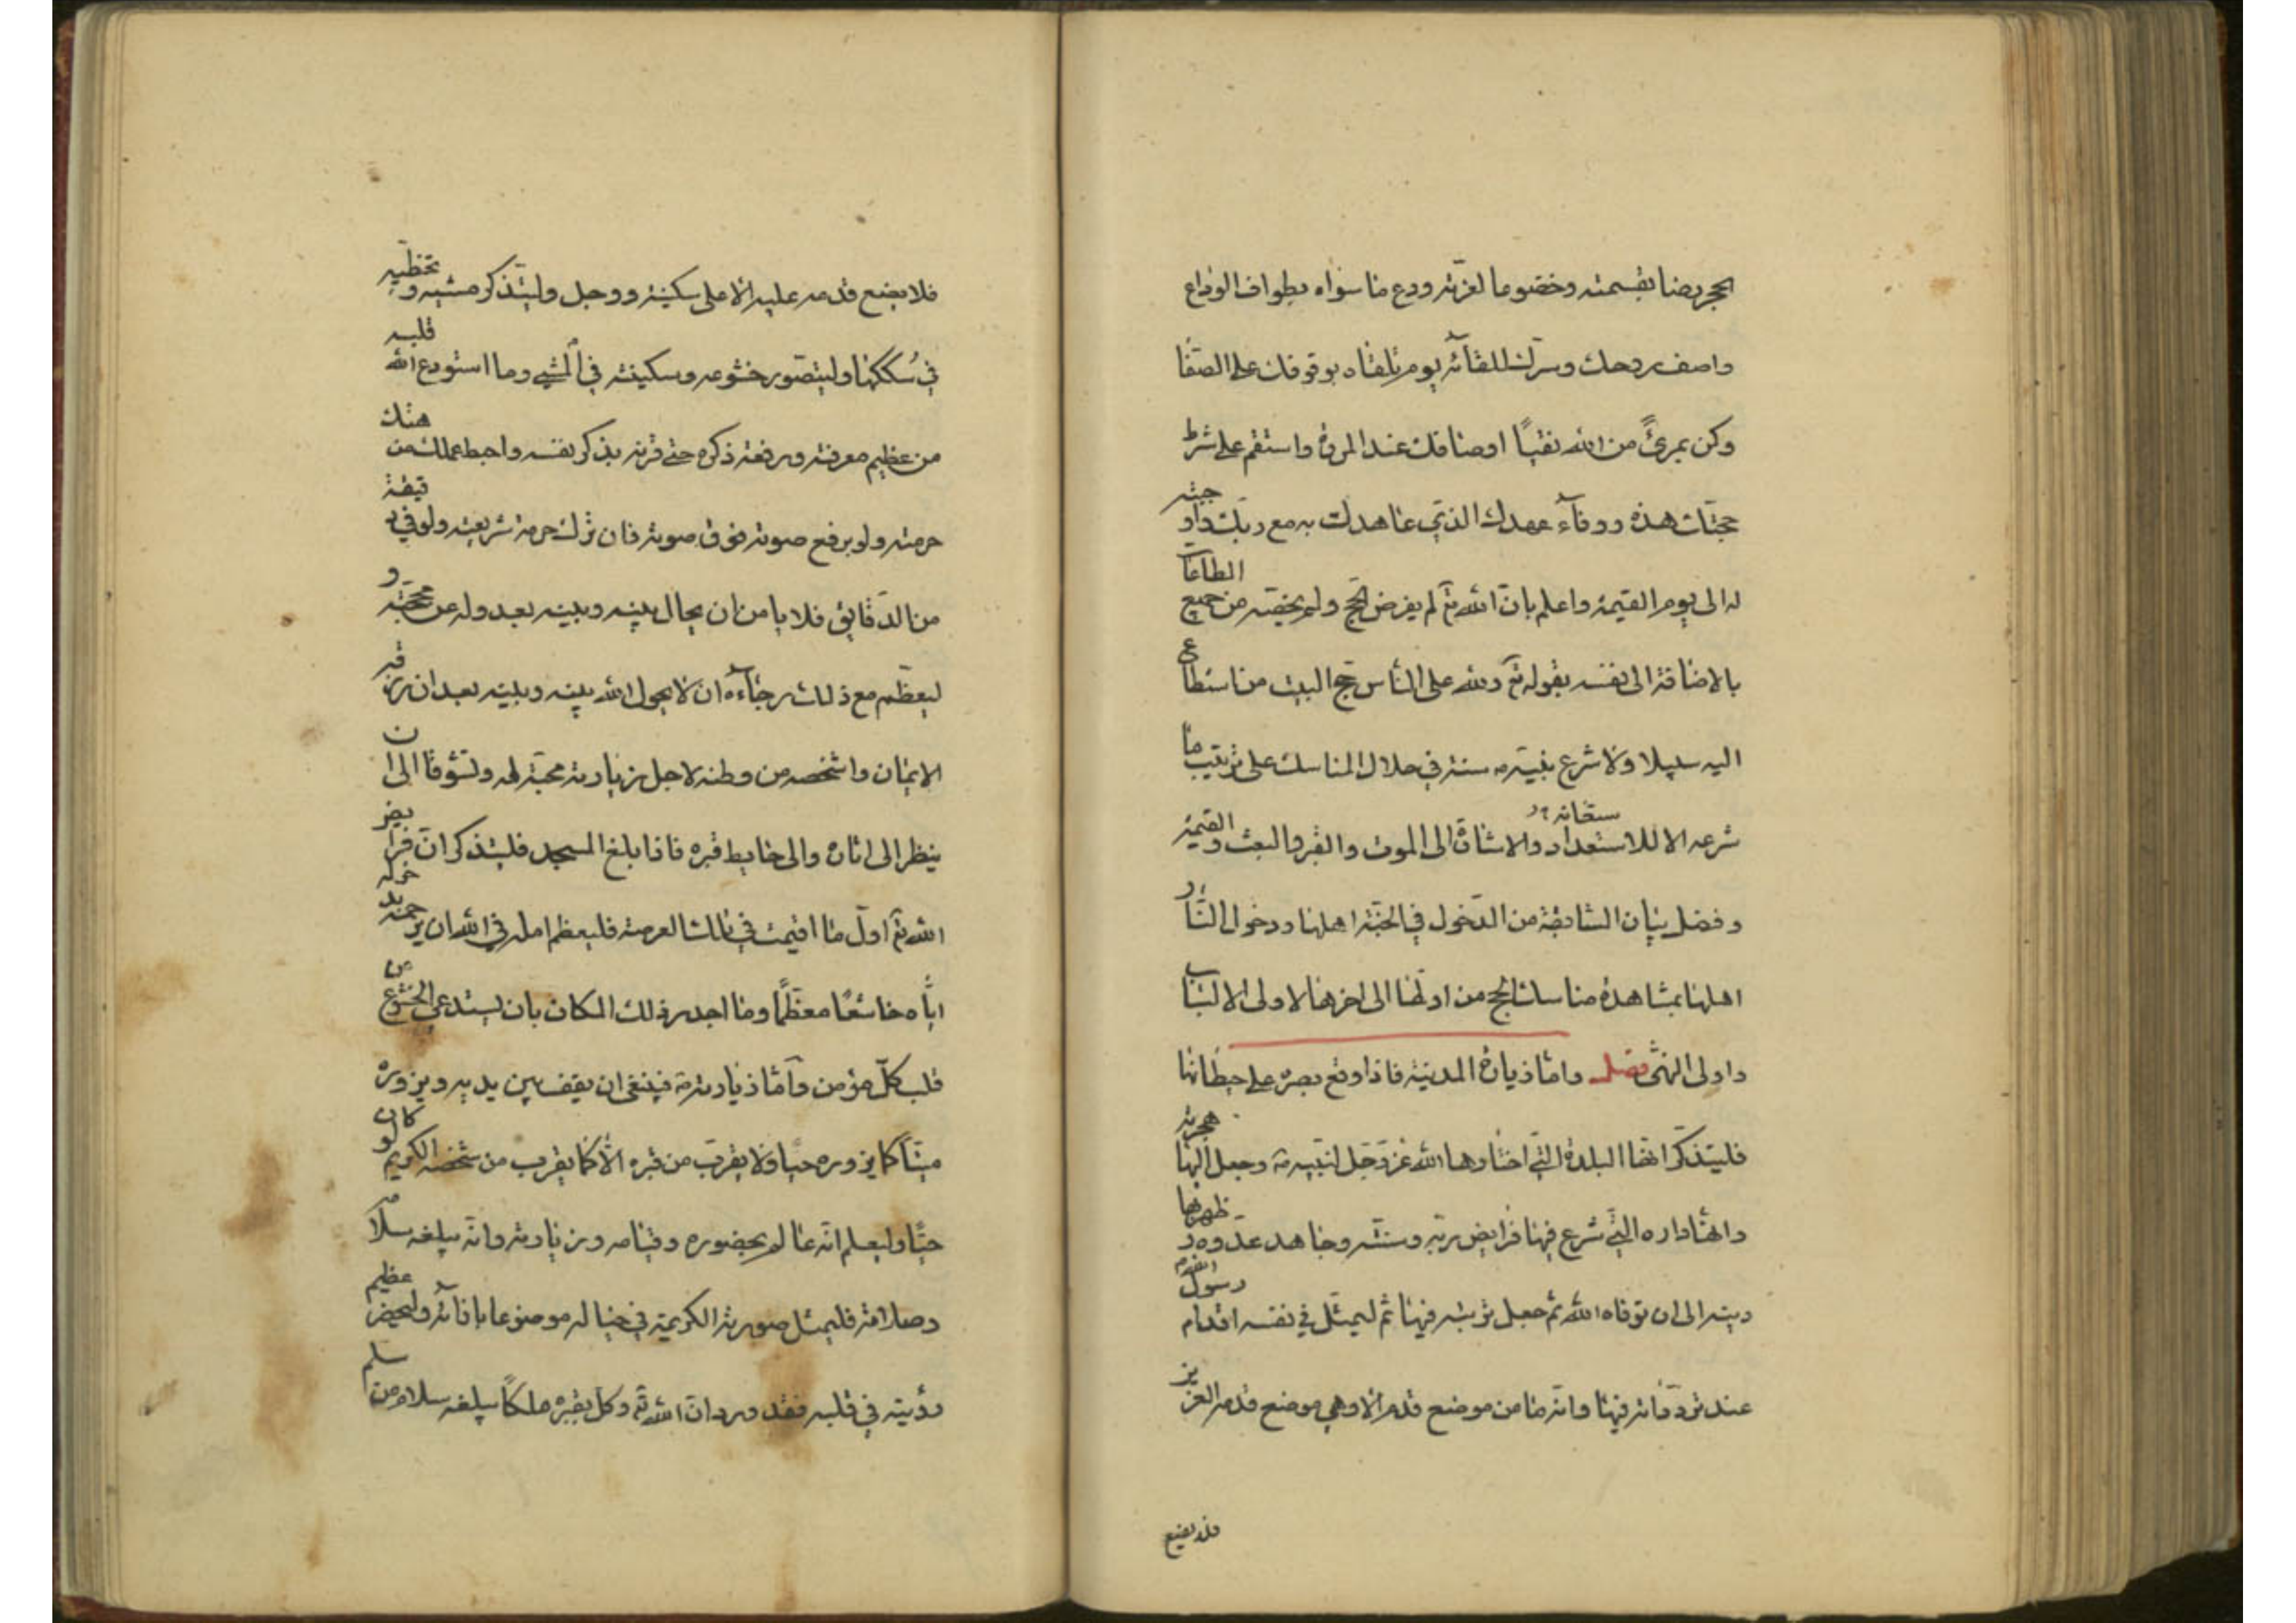 الحجر رضا بقسمته وخضوعا لعزّته ودع ما سواه بطواف الوداع
واصف روحك وسرّك للقآئه يوم تلقاه بوقوفك على الصّفا
وكن بمرئً من الله نقيّاً اوصافك عند المروة واستقم على شرط
حجّتك هذه ووفآء عهدك الذي عاهدت به مع ربّك واوجبته
له الى يوم القيمة واعلم بانّ الله تع لم يفرض الحجّ ولم يخصّه من جميع الطاعات
بالاضافة الى نفسه بقوله تع ولله على النّاس حجّ البيت من استطاع
اليه سبيلا ولا شرع نبيّه ص سنة في خلال المناسك على ترتيب ما
شرعه الا للاستعداد والاشارة الى الموت والقبر والبعث والقيمة
وفضل بيان السّابقة من الدّخول في الجنّة اهلها ودخول النّار
اهلها بمشاهدة مناسك الحج من اولها الى اخرها لاولى الالباب
واولى النّهى فصل وامّا زيارة المدينة فاذا وقع بصره على حيطانها
فليتذكّر انّها البلدة الّتي اختارها الله عزّ وجلّ لنبيّه ص وجعل اليها هجرته
وانّها داره الّتي شرع فيها فرايض ربّه وسننه وجاهد عدوه وظهر بها
دينه الى ان توفاه الله ثم جعل تربته فيها ثم ليمثّل في نفسه اقدام رسول الله ص
عند تردّداته فيها وانّه ما من موضع قدم الا وهي موضع قدمه العزيز
فلا يضع
فلا يضع قدمه عليه الا على سكينة ووجل وليتذكر مشيه وتخطّيه
في سُككها وليتصوّر خشوعه وسكينته في المشي وما استودع الله قلبه
من عظيم معرفته ورفعة ذكره حتى قرنه بذكر نفسه واحبط عمل من هتك
حرمته ولو برفع صوته فوق صوته فان ترك حرمة شريعته ولو في دقيقة
من الدّقايق فلا يامن ان يحال بينه وبينه بعدوله عن محجّته و
ليعظّم مع ذلك رجآءه ان لا يحول الله بينه وبينه بعد ان رزقه
الايمان واشخصه من وطنه لاجل زيارته محبّة له وتشوقا الى ان
ينظر الى اثاره والى حايط قبره فاذا بلغ المسجد فليتذكر انّ فرايض
الله تع اوّل ما اقيمت في تلك العرصة فليعظم امله في الله ان يرحمه بدخوله
ايّاه خاشعًا معظّمًا وما اجدر ذلك المكان بان يستدعي الخشوع من
قلب كلّ مؤمن وامّا زيارته ص فينبغي ان يقف بين يديه ويزوره
ميّتاً كما يزوره حيّا ولا يقرب من قبره الّا كما يقرب من شخصه الكريم لو كان
حيًّا وليعلم انّه عالم بحضوره وقيامه وزيارته وانّه يبلغه سلامه
وصلاته فليمثل صورته الكريمة في خياله موضوعا بازآئه وليحضر عظيم
رؤيته في قلبه فقد ورد انّ الله تع وكل بقبره ملكاً يبلغه سلام من سلم